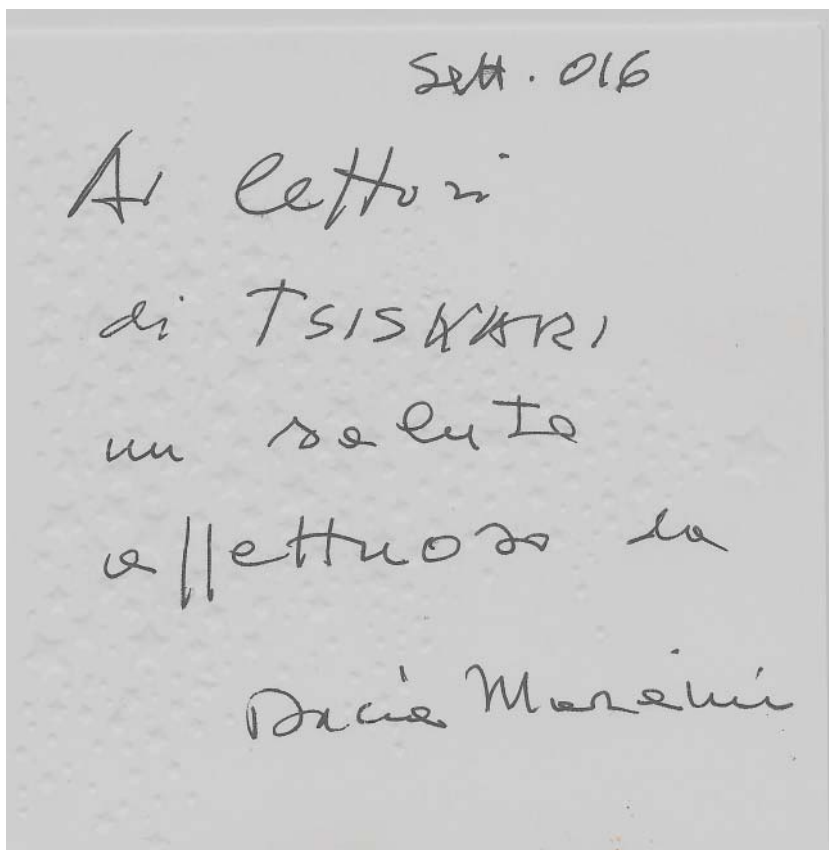 Sett. 016
Ai lettori
di TSISKARI
un saluto
affettuoso da
Dacia Maraini